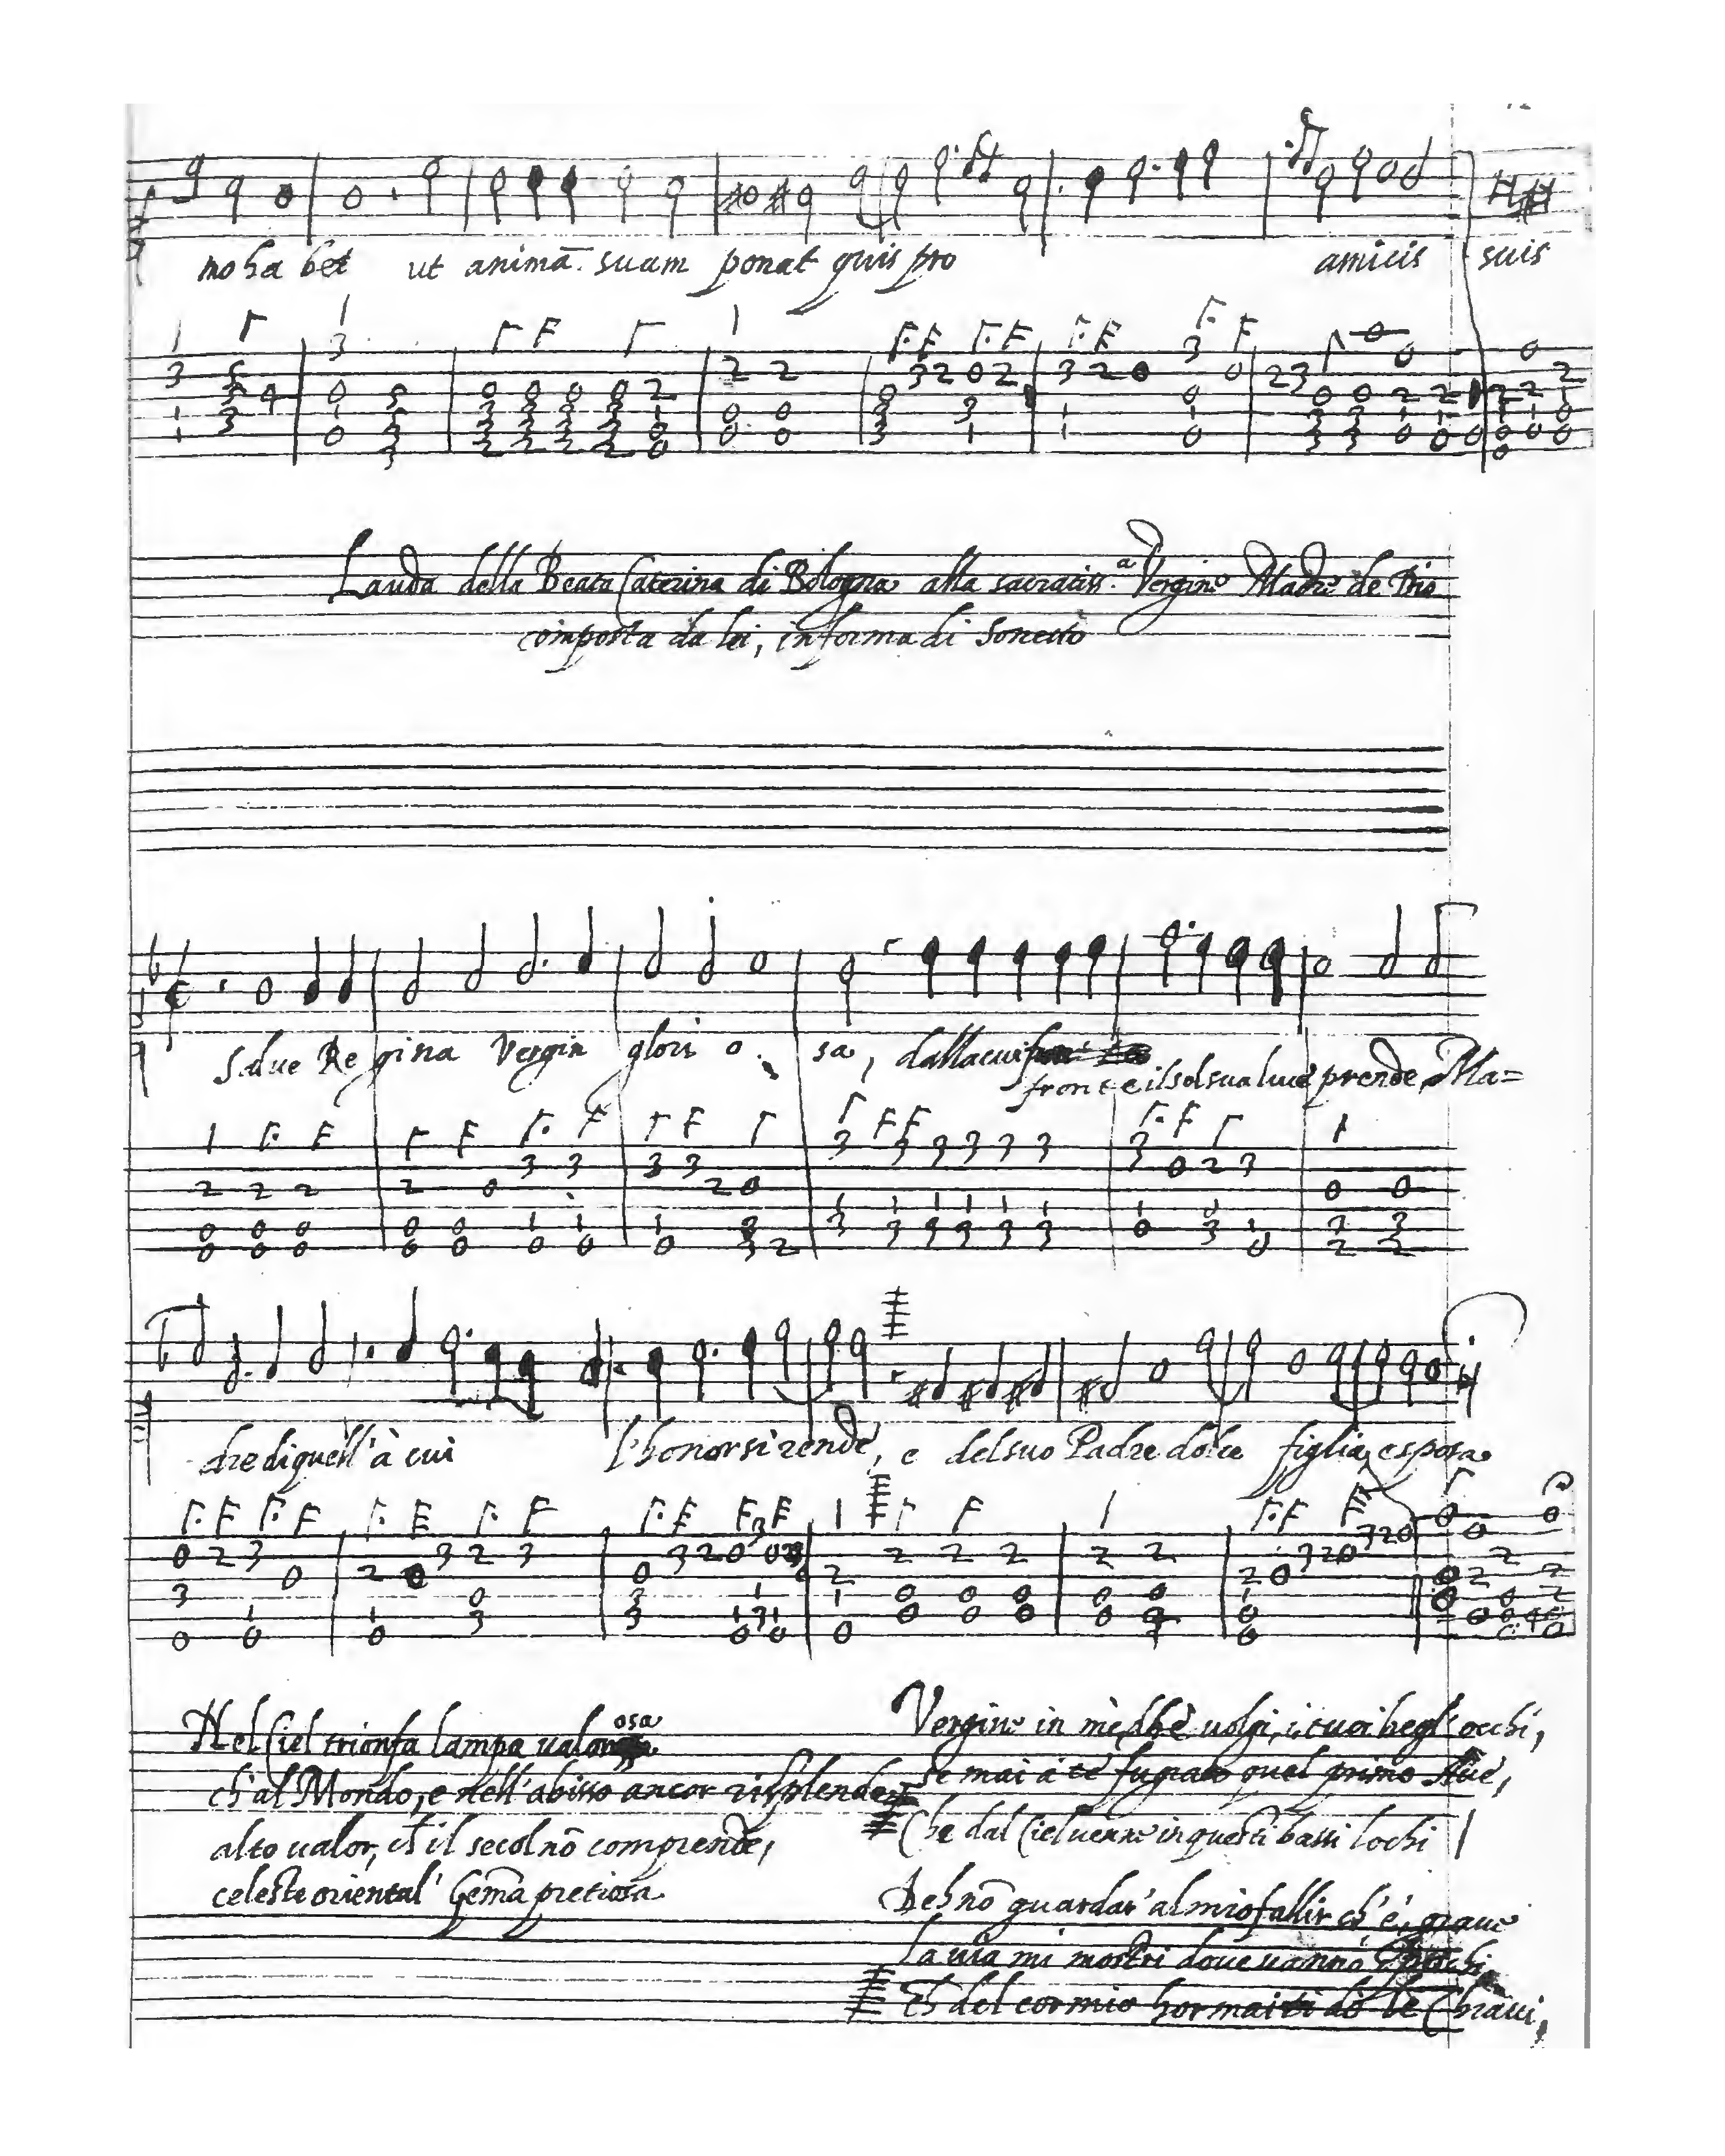 mo ha bet ut animā suam ponat quis pro amicis suis
Lauda della Beata Caterina di Bologna alla sacratiss.a Vergine Madre de Dio
composta da lei, in forma di Sonetto
Salue Re gina Vergin glori o sa, dalla cui
fronte il sol sua luce prende Ma=
dre di quell' à cui l'honor si rende, e del suo Padre dolce figlia, e sposa
Nel Ciel trionfa lampa ualorosa
ch'al Mondo, e nell'abisso ancor risplende
alto ualor, ch'il secol nō comprende,
celeste oriental' Gēma pretiosa
Vergine in mè, dhe uolgi, i tuoi begl' occhi,
Se mai à te fu grato quel primo Aue,
Che dal Ciel uenne in questi bassi lochi
Deh nō guardar' al mio fallir ch' é, graue
La uia mi mostri doue uanno
Ch del cor mio hormai ti do le Chiaui,